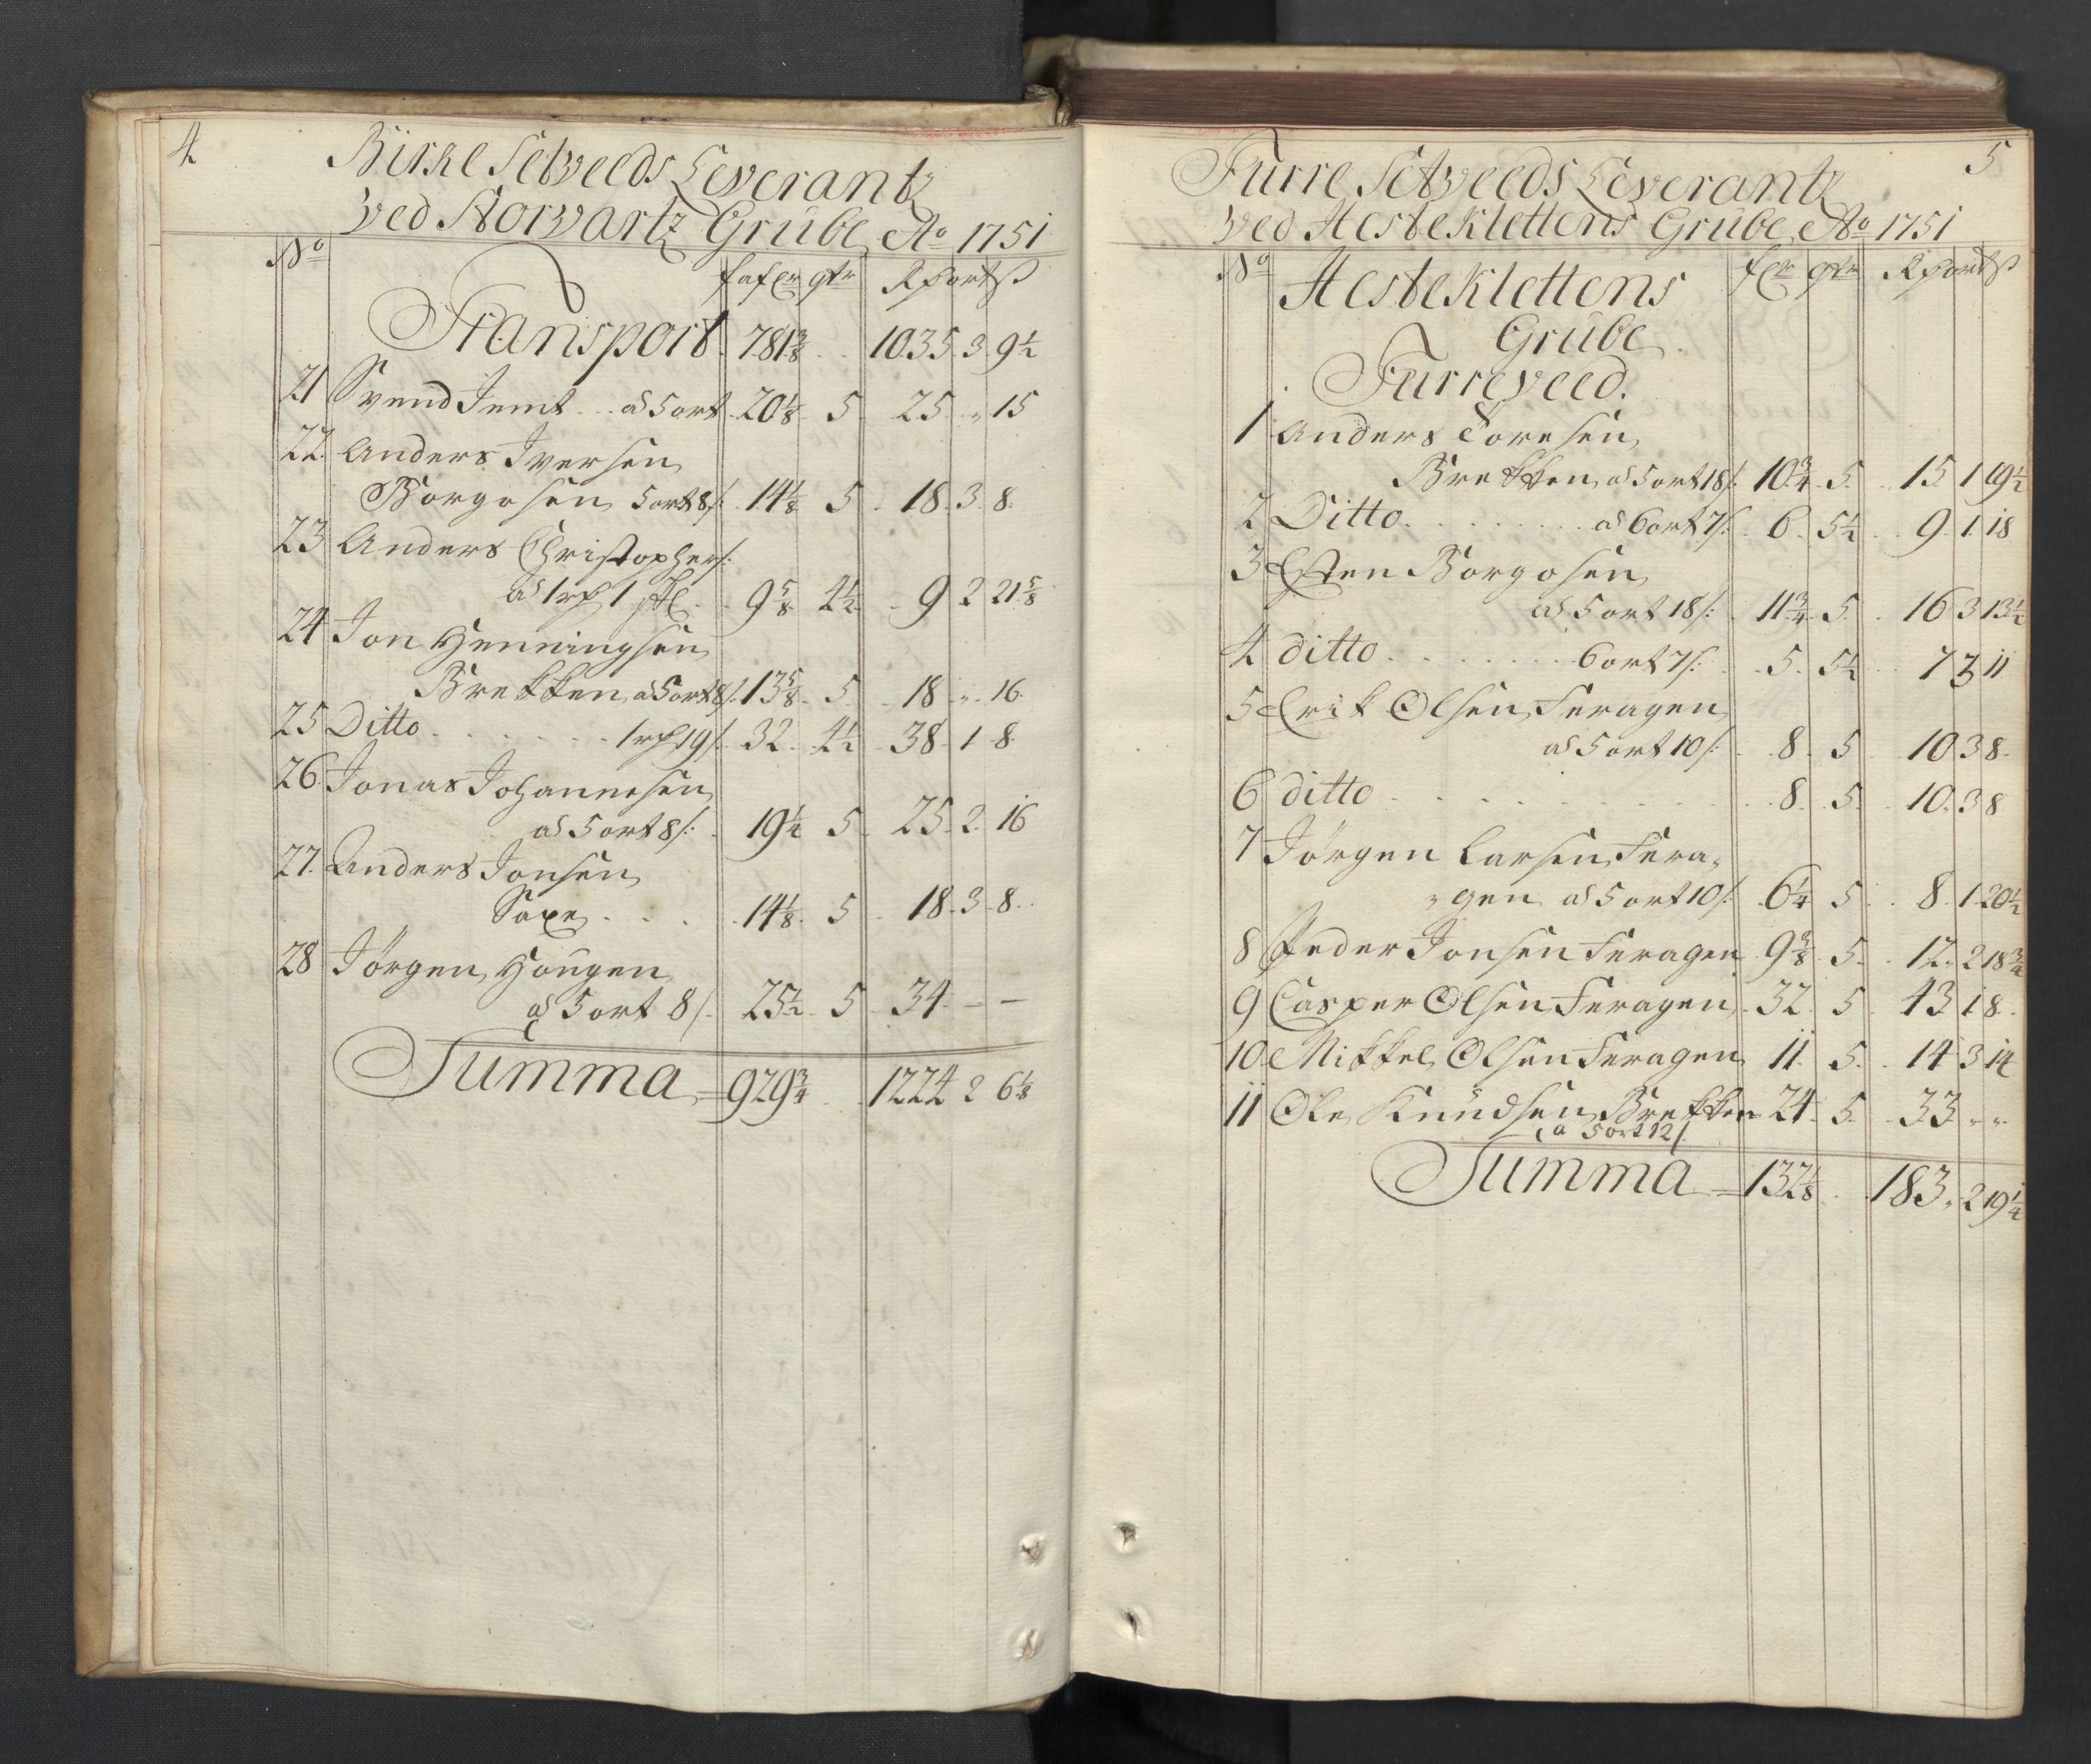 4
Birke Setveeds Leverantz
ved Storvartz Grube Ao 1751
No fafen qtr Rp ort s
Transport. 781 3/8 . . 1035. 3. 9 1/2
21 Svend Jemt . . a 5 ort 20 1/8 . 5 25 „ 15
22. Anders Iversen
Borgosen 5 ort 8 s. 14 1/8 5 . 18. 3. 8.
23 Anders Christophers:
a 1 rp 1 . . 9 5/8 4 1/2 . 9 2 21 5/8
24 Jon Henningsen
Brekken a 5 ort 8 s: 13 5/8 . 5. . 18 „ . 16.
25 Ditto . . . . . . 1 rp 19 s 32. 4 1/2 . 38. 1. 8.
26. Jonas Johannesen
a 5 ort 8 s: . 19 1/4 5 . 25. 2. 16
27. Anders Jonsen
Saxe . . . . 14 1/8 . 5 . 18. 3. 8 . .
28 Jørgen Hougen
a 5 ort 8 s . 25 1/2 . 5 . 34. — —
Summa = 929 3/4 . . 1224 2 6 1/8
5
Furre Setveeds Leverantz
ved Hesteklettens Grube Ao 1751
No Hesteklettens fen qtr Rp ort s
Grube.
. Furreveed.
1 Anders Toresen
Brekken a 5 ort 18 s: 10 3/4 . 5. . 15. 1 19 1/2
2 Ditto . . . . . . . a 6 ort 7 s. . 6. 5 1/2 . . 9. 1. 18
3 Esten Borgosen
a 5 ort 18 s: . 11 3/4 . 5. . 16 3 13 1/2
4 ditto . . . . . . . 6 ort 7 s: . 5. 5 1/2 . . 7 3 11
5 Erik Olsen Feragen
a 5 ort 10 s: . 8 . 5 . 10 3 8.
6 ditto . . . . . . . . . . . 8. . 5. . 10. 3 8
7 Jørgen Larsen Fera„
„gen a 5 ort 10 s: . 6 1/4 5 . . 8. 1 20 1/2
8 Peder Jonsen Feragen 9 3/8 . 5. . 12. 2 18 3/4
9 Casper Olsen Feragen . 32. 5 . 43 1 8.
10. Mikkel Olsen Feragen 11. 5. . 14 3 14
11 Ole Knudsen Brekken 24. 5. . 33. „ „
a 5 ort 12 s.
Summa = 132 1/8 . . 183. 2 19 1/4